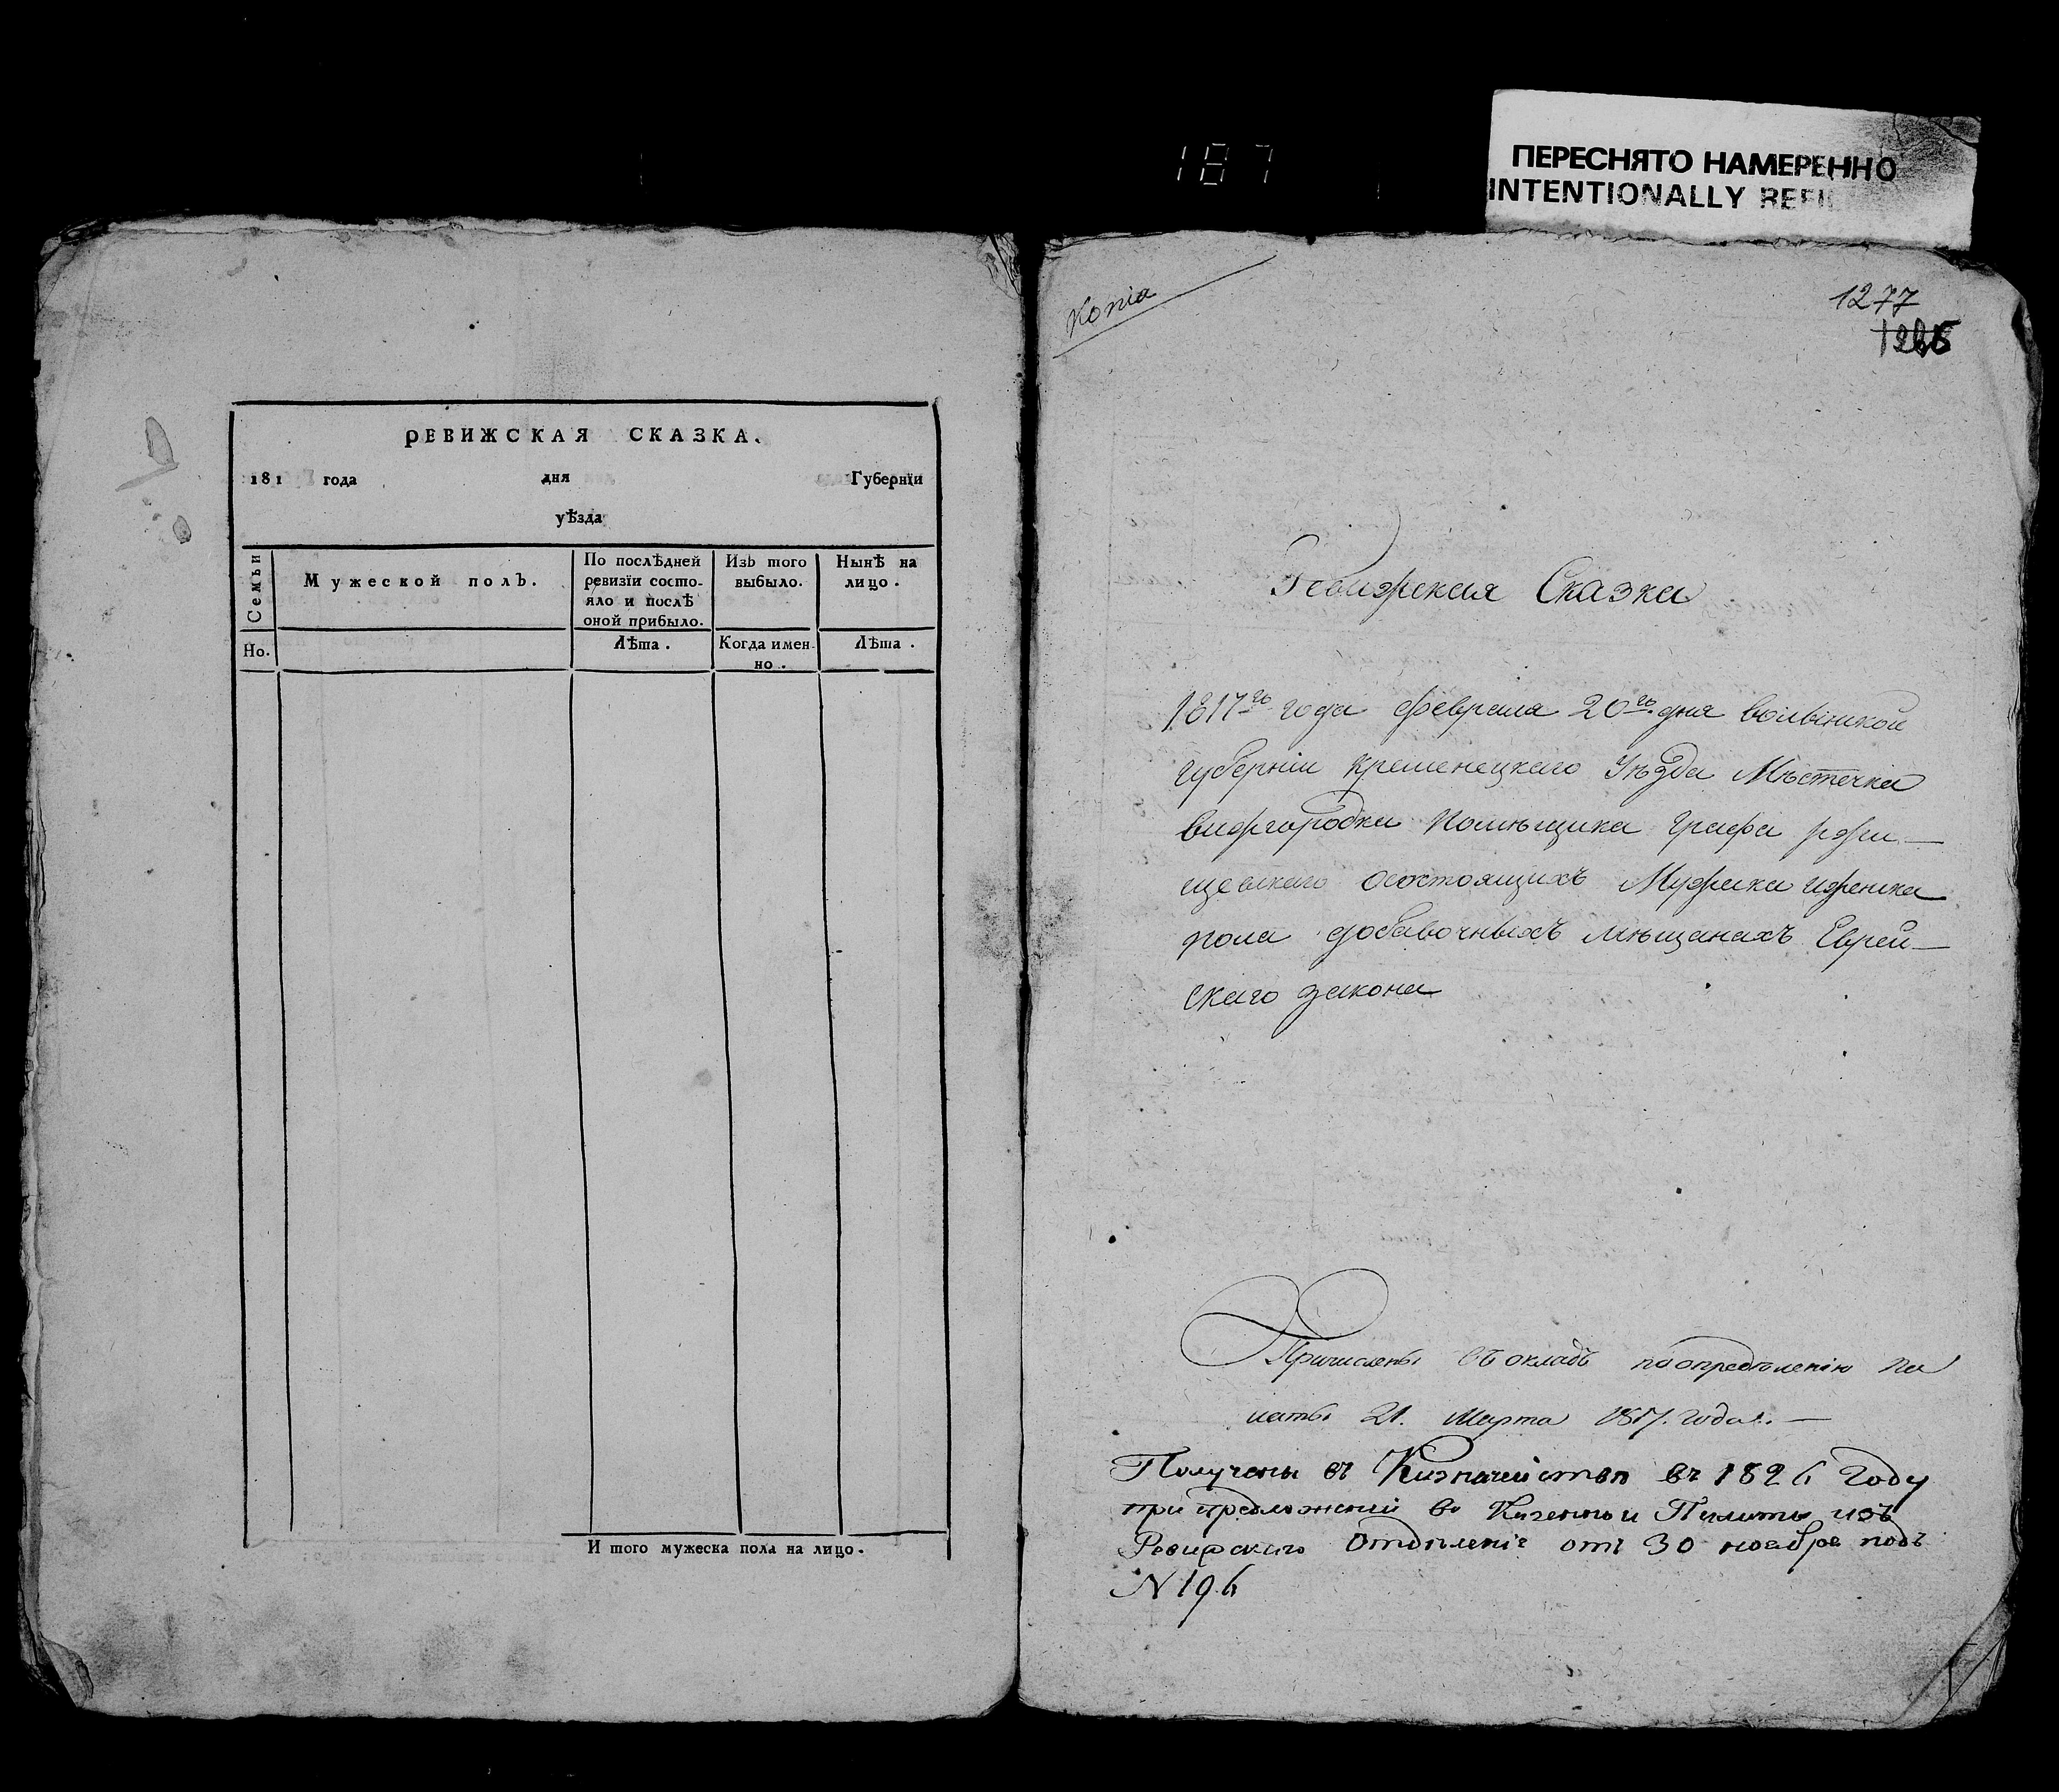 187
ПЕРЕСНЯТО НАМЕРЕННО
INTENTIONALLY REFI
РЕВИЖСКАЯ СКАЗКА.
181 года дня Губернїи
уѣзда
Семьи
Мужеской полъ.
По послѣдней ревизїи состояло и послѣ оной прибыло.
Изъ того выбыло.
Нынѣ на лицо.
Но.
Лѣта.
Когда именно.
Лѣта.
И того мужеска пола на лицо.
Копiа
1277
Ревижская Сказка
1817го года февраля 20го дня волынской
губернiи кременецкаго уѣзда Мѣстечка
вижгородка помѣщика графа ржи-
щевскаго осостоящихъ Мужска иженска
пола добавочныхъ мѣщанахъ Еврей-
скаго закона
Причислены въ окладъ поопредѣленiю па
латы 21. Марта 1817. года.
Получены въ Казначействѣ въ 1826 году
при предложенiи Казенной Палаты изъ
Ревижскаго Отдѣленiе отъ 30 ноебре подъ
N 196